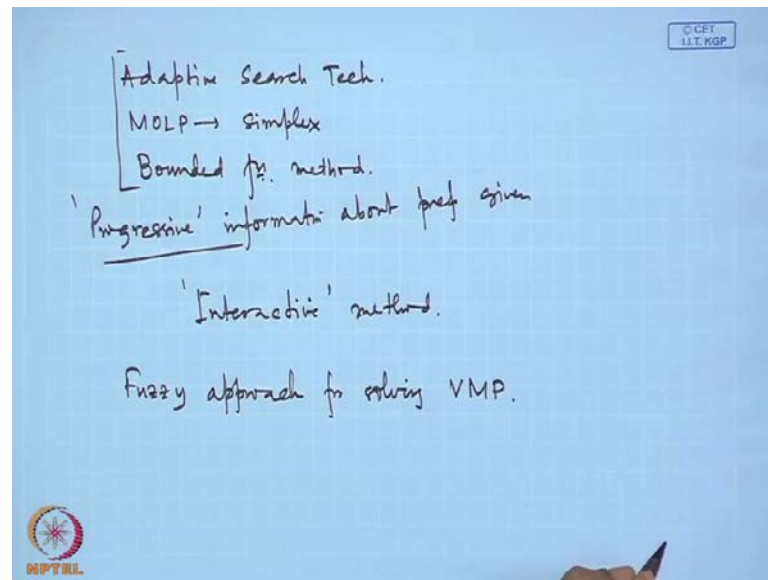 © CET
I.I.T. KGP
Adaptive Search Tech.
MOLP → Simplex
Bounded fn. method.
'Progressive' informatn about pref given
'Interactive' method.
Fuzzy approach for solving VMP.
NPTEL